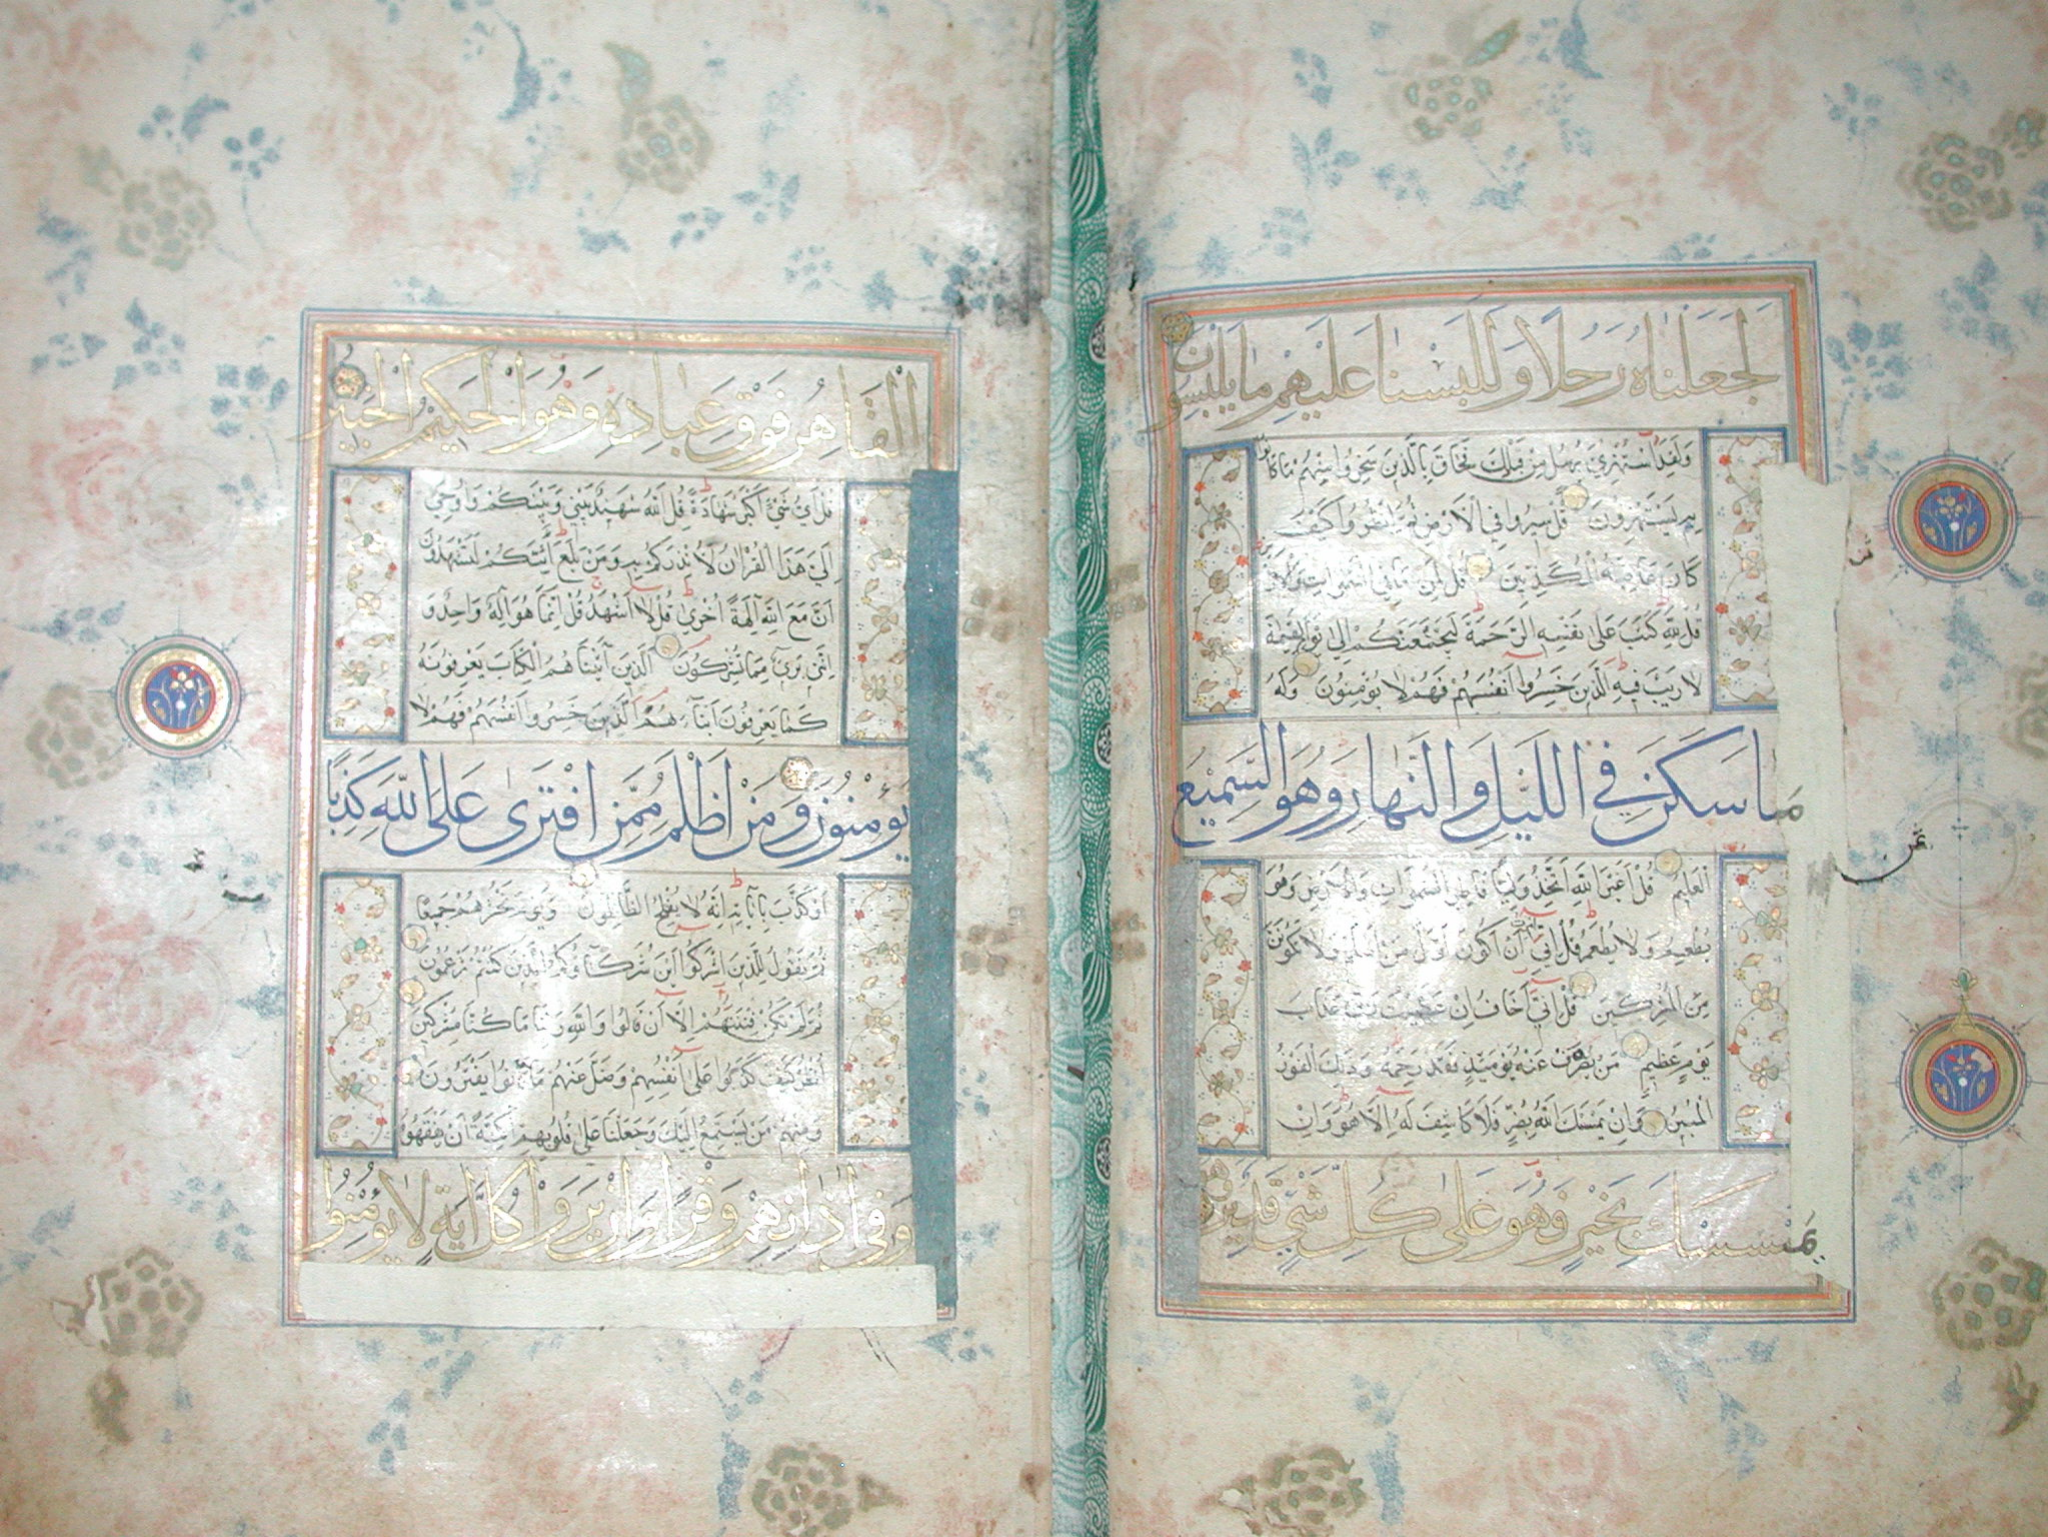 لَجَعَلْنَاهُ رَجُلًا وَلَلَبَسْنَا عَلَيْهِمْ مَا يَلْبِسُونَ
وَلَقَدِ اسْتُهْزِئَ بِرُسُلٍ مِنْ قَبْلِكَ فَحَاقَ بِالَّذِينَ سَخِرُوا مِنْهُمْ مَا كَانُوا
بِهِ يَسْتَهْزِؤُنَ قُلْ سِيرُوا فِي الْأَرْضِ ثُمَّ انْظُرُوا كَيْفَ
كَانَ عَاقِبَةُ الْمُكَذِّبِينَ قُلْ لِمَنْ مَا فِي السَّمٰوَاتِ وَالْأَرْضِ
قُلْ لِلّٰهِ كَتَبَ عَلَىٰ نَفْسِهِ الرَّحْمَةَ لَيَجْمَعَنَّكُمْ إِلَىٰ يَوْمِ الْقِيٰمَةِ
لَا رَيْبَ فِيهِ الَّذِينَ خَسِرُوا أَنْفُسَهُمْ فَهُمْ لَا يُؤْمِنُونَ وَلَهُ
مَا سَكَنَ فِي اللَّيْلِ وَالنَّهَارِ وَهُوَ السَّمِيعُ
الْعَلِيمُ قُلْ أَغَيْرَ اللّٰهِ أَتَّخِذُ وَلِيًّا فَاطِرِ السَّمٰوَاتِ وَالْأَرْضِ وَهُوَ
يُطْعِمُ وَلَا يُطْعَمُ قُلْ إِنِّي أُمِرْتُ أَنْ أَكُونَ أَوَّلَ مَنْ أَسْلَمَ وَلَا تَكُونَنَّ
مِنَ الْمُشْرِكِينَ قُلْ إِنِّي أَخَافُ إِنْ عَصَيْتُ رَبِّي عَذَابَ
يَوْمٍ عَظِيمٍ مَنْ يُصْرَفْ عَنْهُ يَوْمَئِذٍ فَقَدْ رَحِمَهُ وَذٰلِكَ الْفَوْزُ
الْمُبِينُ وَإِنْ يَمْسَسْكَ اللّٰهُ بِضُرٍّ فَلَا كَاشِفَ لَهُ إِلَّا هُوَ وَإِنْ
يَمْسَسْكَ بِخَيْرٍ فَهُوَ عَلَىٰ كُلِّ شَيْءٍ قَدِيرٌ وَهُوَ
ثمن
الْقَاهِرُ فَوْقَ عِبَادِهِ وَهُوَ الْحَكِيمُ الْخَبِيرُ
قُلْ أَيُّ شَيْءٍ أَكْبَرُ شَهَادَةً قُلِ اللّٰهُ شَهِيدٌ بَيْنِي وَبَيْنَكُمْ وَأُوحِيَ
إِلَيَّ هٰذَا الْقُرْاٰنُ لِأُنْذِرَكُمْ بِهِ وَمَنْ بَلَغَ أَئِنَّكُمْ لَتَشْهَدُونَ
أَنَّ مَعَ اللّٰهِ اٰلِهَةً أُخْرَىٰ قُلْ لَا أَشْهَدُ قُلْ إِنَّمَا هُوَ إِلٰهٌ وَاحِدٌ وَ
إِنَّنِي بَرِيءٌ مِمَّا تُشْرِكُونَ الَّذِينَ اٰتَيْنَاهُمُ الْكِتَابَ يَعْرِفُونَهُ
كَمَا يَعْرِفُونَ أَبْنَاءَهُمُ الَّذِينَ خَسِرُوا أَنْفُسَهُمْ فَهُمْ لَا
يُؤْمِنُونَ وَمَنْ أَظْلَمُ مِمَّنِ افْتَرَىٰ عَلَى اللّٰهِ كَذِبًا
أَوْ كَذَّبَ بِاٰيَاتِهِ إِنَّهُ لَا يُفْلِحُ الظَّالِمُونَ وَيَوْمَ نَحْشُرُهُمْ جَمِيعًا
ثُمَّ نَقُولُ لِلَّذِينَ أَشْرَكُوا أَيْنَ شُرَكَاؤُكُمُ الَّذِينَ كُنْتُمْ تَزْعُمُونَ
ثُمَّ لَمْ تَكُنْ فِتْنَتُهُمْ إِلَّا أَنْ قَالُوا وَاللّٰهِ رَبِّنَا مَا كُنَّا مُشْرِكِينَ
اُنْظُرْ كَيْفَ كَذَبُوا عَلَىٰ أَنْفُسِهِمْ وَضَلَّ عَنْهُمْ مَا كَانُوا يَفْتَرُونَ
وَمِنْهُمْ مَنْ يَسْتَمِعُ إِلَيْكَ وَجَعَلْنَا عَلَىٰ قُلُوبِهِمْ أَكِنَّةً أَنْ يَفْقَهُوهُ
وَفِي اٰذَانِهِمْ وَقْرًا وَإِنْ يَرَوْا كُلَّ اٰيَةٍ لَا يُؤْمِنُوا